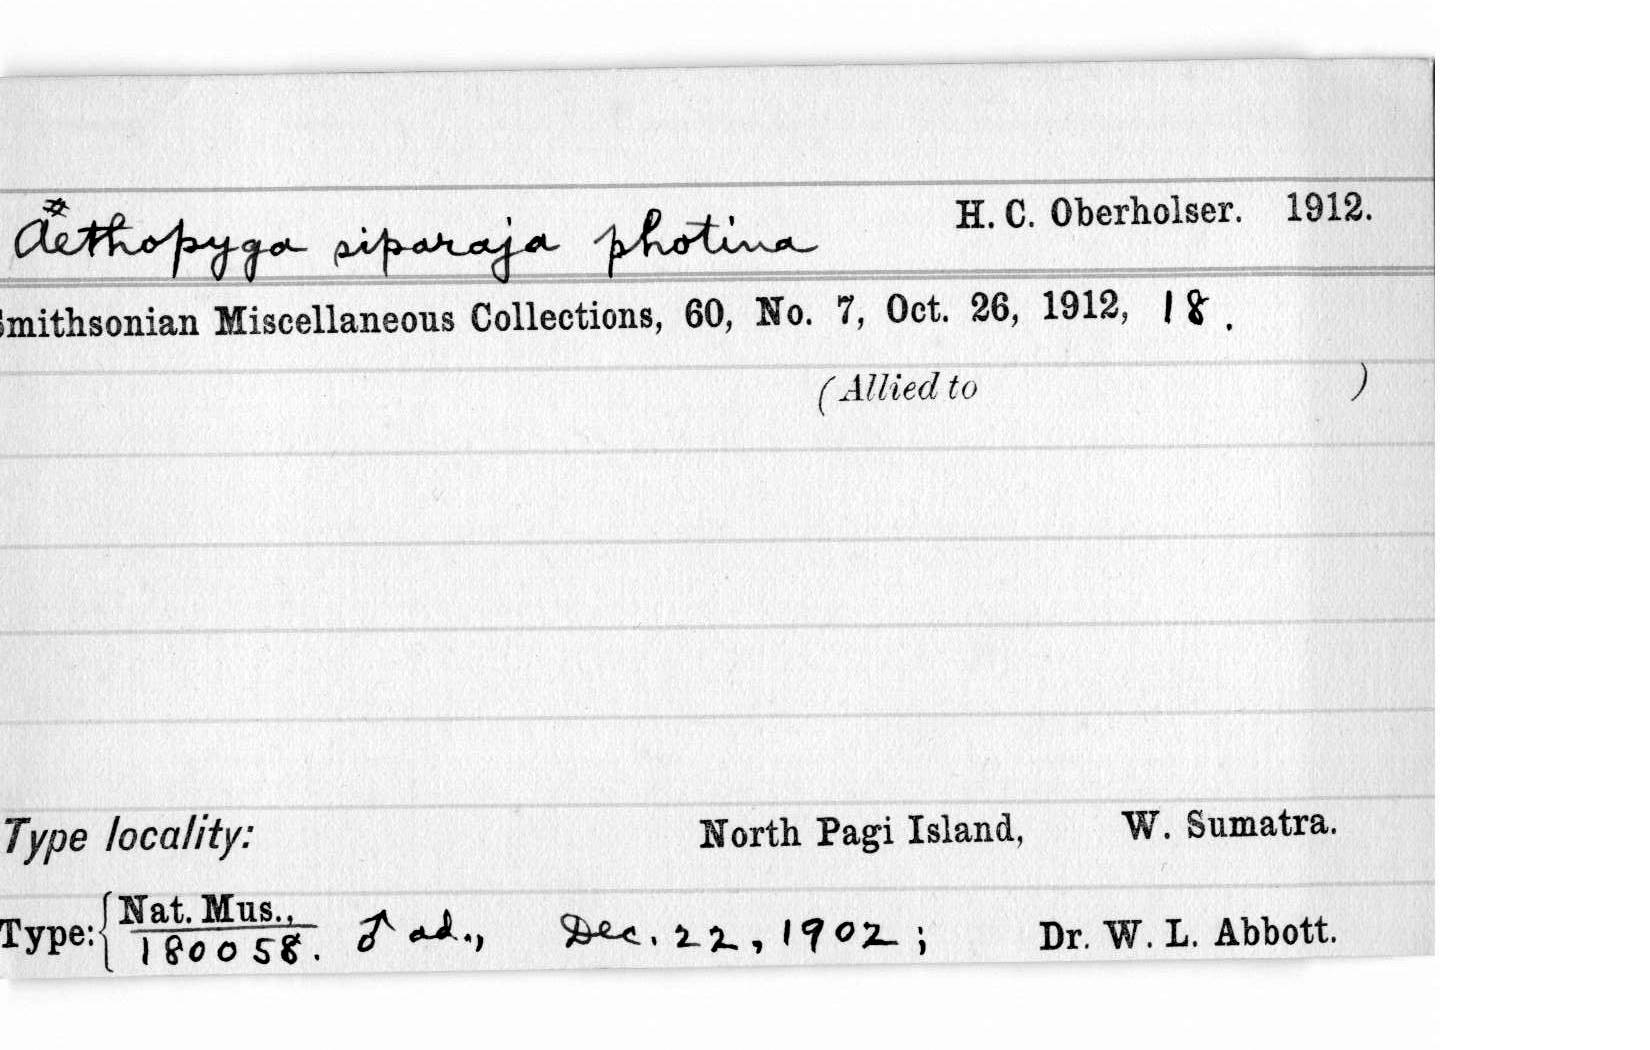 #
Aethopyga siparaja photina H. C. Oberholser. 1912.
Smithsonian Miscellaneous Collections, 60, No. 7, Oct. 26, 1912, 18.
(Allied to )
Type locality: North Pagi Island, W. Sumatra.
Type: { Nat. Mus.,
180058. ♂ ad., Dec. 22, 1902; Dr. W. L. Abbott.